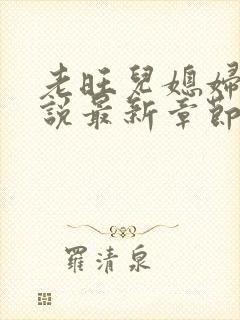 老旺兒媳婦
說最新章節
羅清泉